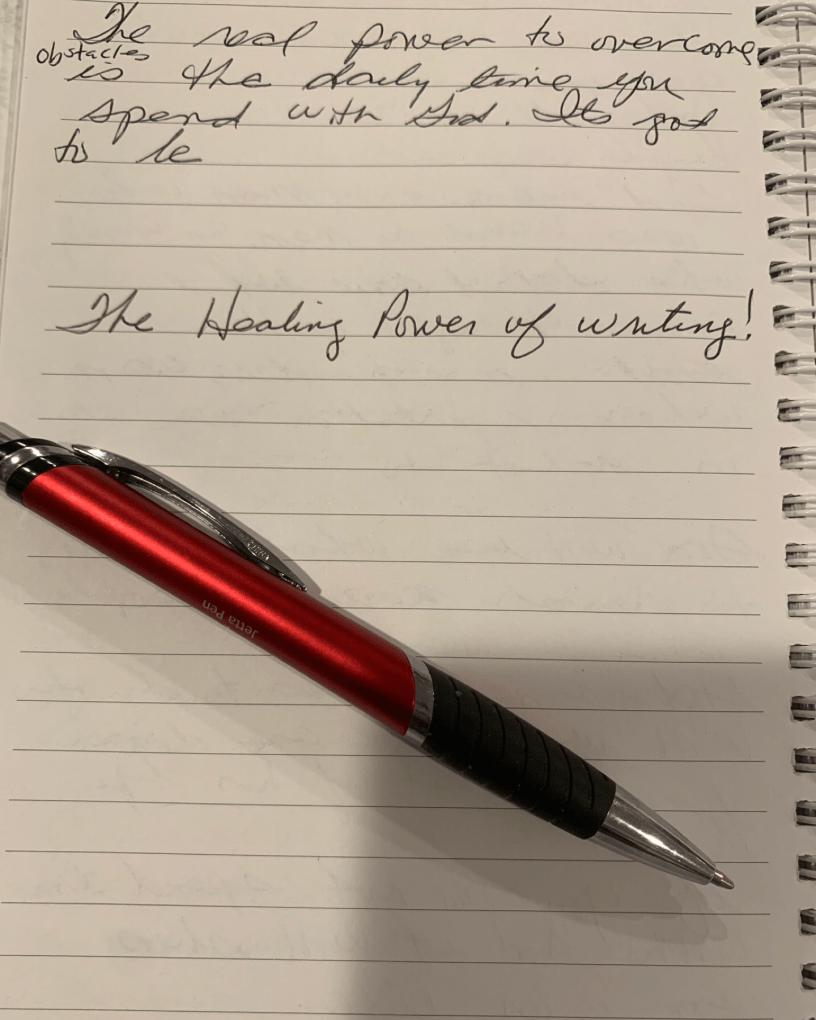 The real power to overcome
obstacles
is the daily time you
spend with God. Its got
to be
The Healing Power of writing!
Jetta Pen